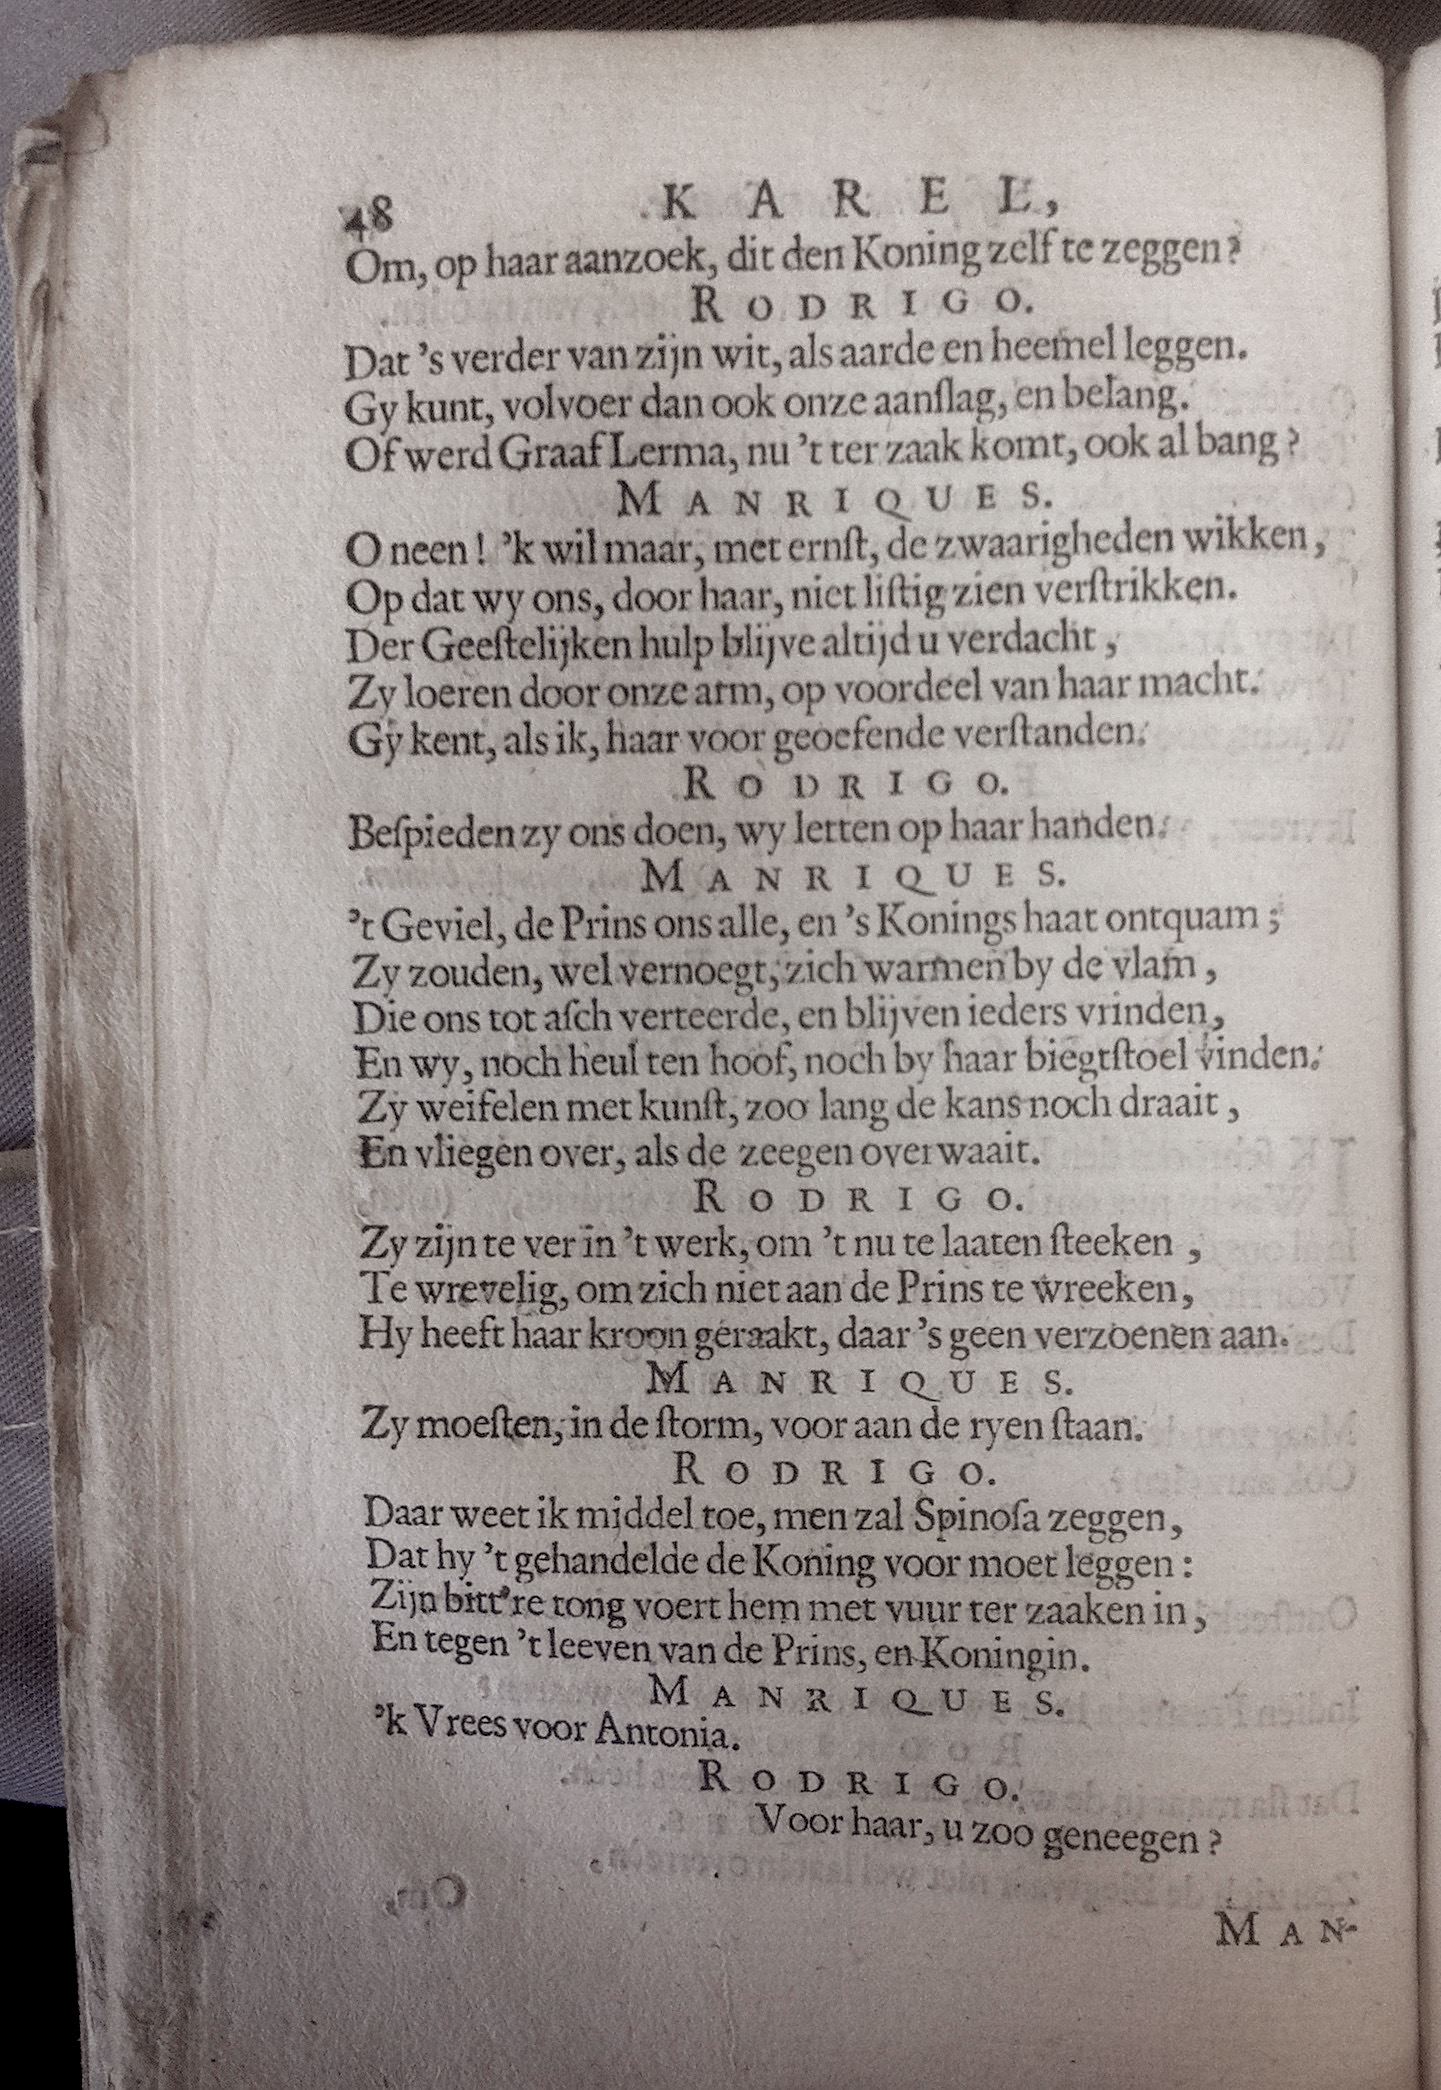 48 KAREL,
Om, op haar aanzoek, dit den Koning zelf te zeggen?
RODRIGO.
Dat 's verder van zijn wit, als aarde en heemel leggen.
Gy kunt, volvoer dan ook onze aanſlag, en belang.
Of werd Graaf Lerma, nu 't ter zaak komt, ook al bang?
MANRIQUES.
O neen! 'k wil maar, met ernſt, de zwaarigheden wikken,
Op dat wy ons, door haar, niet liſtig zien verſtrikken.
Der Geeſtelijken hulp blijve altijd u verdacht,
Zy loeren door onze arm, op voordeel van haar macht.
Gy kent, als ik, haar voor geoefende verſtanden.
RODRIGO.
Beſpieden zy ons doen, wy letten op haar handen.
MANRIQUES.
't Geviel, de Prins ons alle, en 's Konings haat ontquam;
Zy zouden, wel vernoegt, zich warmen by de vlam,
Die ons tot aſch verteerde, en blijven ieders vrinden,
En wy, noch heul ten hoof, noch by haar biegtſtoel vinden.
Zy weifelen met kunſt, zoo lang de kans noch draait,
En vliegen over, als de zeegen overwaait.
RODRIGO.
Zy zijn te ver in 't werk, om 't nu te laaten ſteeken,
Te wrevelig, om zich niet aan de Prins te wreeken,
Hy heeft haar kroon geraakt, daar 's geen verzoenen aan.
MANRIQUES.
Zy moeſten, in de ſtorm, voor aan de ryen ſtaan.
RODRIGO.
Daar weet ik middel toe, men zal Spinoſa zeggen,
Dat hy 't gehandelde de Koning voor moet leggen:
Zijn bitt're tong voert hem met vuur ter zaaken in,
En tegen 't leeven van de Prins, en Koningin.
MANRIQUES.
'k Vrees voor Antonia.
RODRIGO.
Voor haar, u zoo geneegen?
MAN-